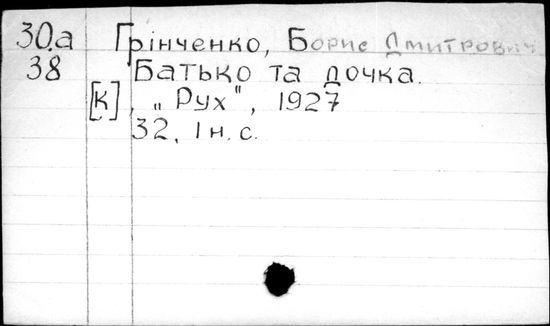 30.а Грінченко, Борис Дмитрович
38 Батько та дочка.
[К], „Рух", 1927
32, 1 н. с.